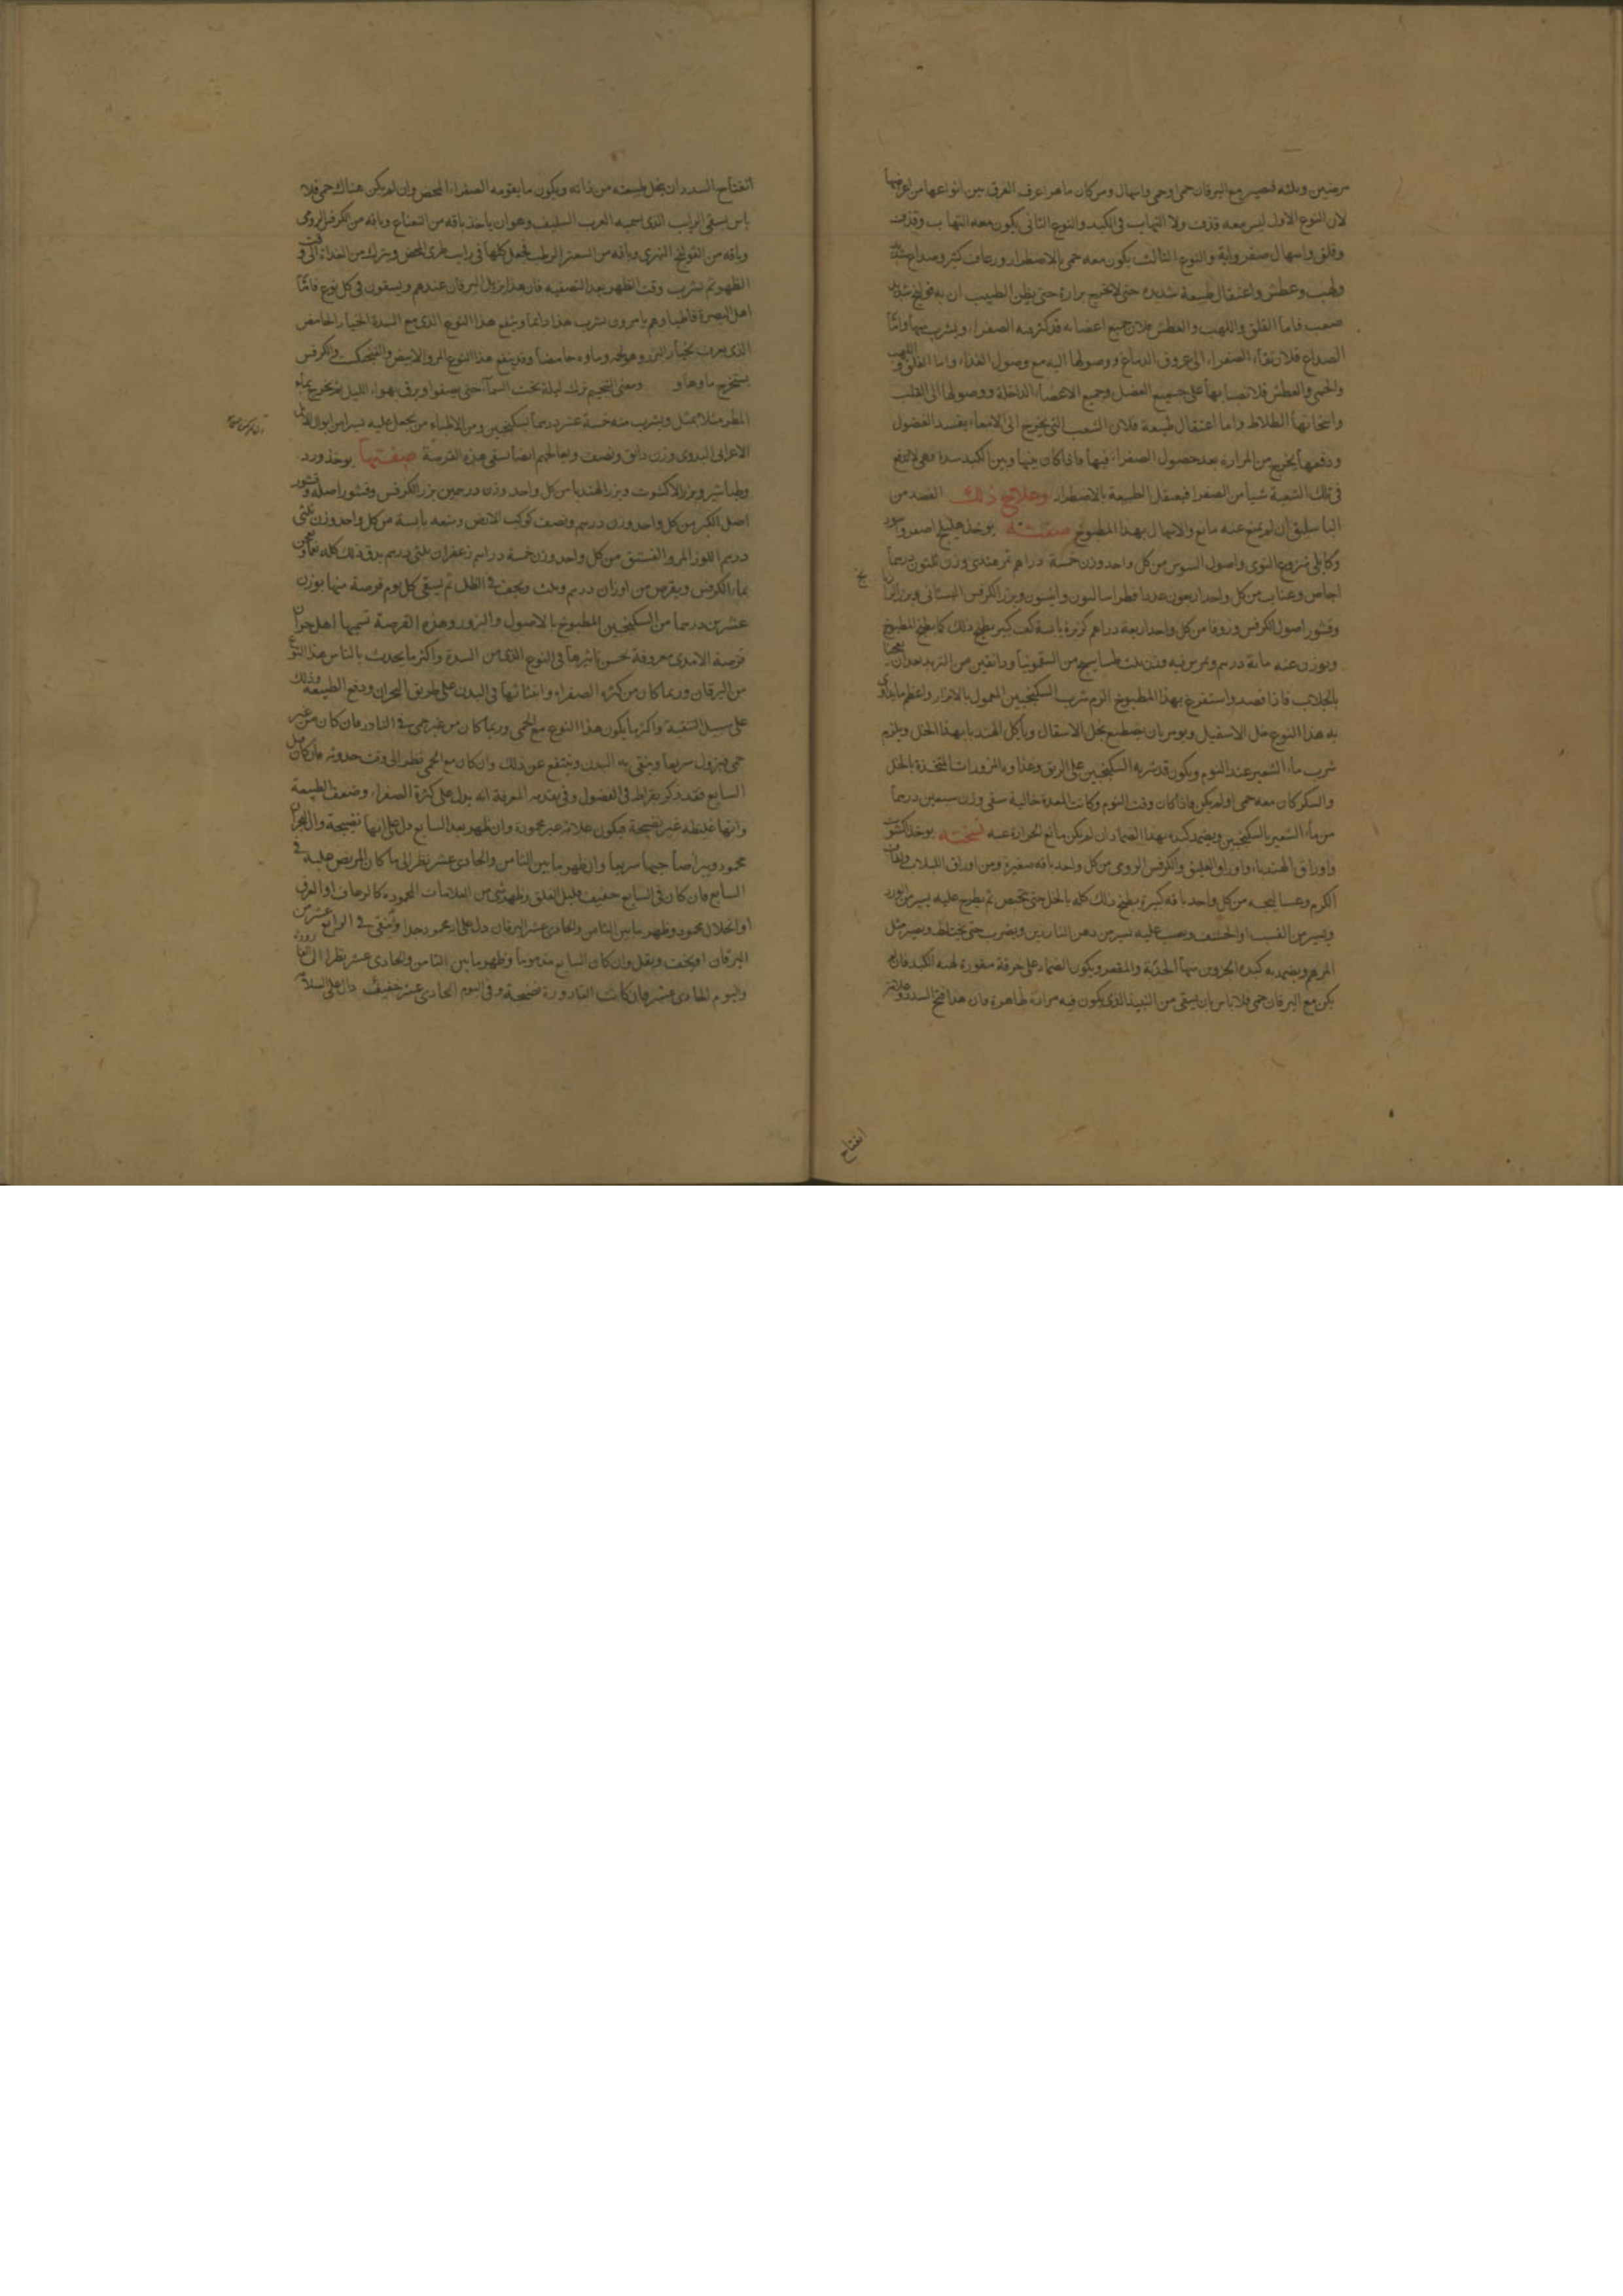 مرضين وثلثه فيصير مع اليرقان حمى او حمى واسهال ومن كان ماهرا عرف الفرق بين انواعها من اعراضها
لان النوع الاول ليس معه قذف ولا التهاب في الكبد والنوع الثاني يكون معه التهاب وقذف
وقلق واسهال صفراوية والنوع الثالث يكون معه حمى بالاضطرار ورعاف كثير وصداع شديد
ولهب وعطش واعتقال طبيعة شديده حتى لا يخرج برازه حتى يظن الطبيب ان به قولنج شديد
صعب فاما القلق واللهب والعطش فلان جميع اعضائه قد كثر فيه الصفراء ويشرب منها واما
الصداع فلارتقاء الصفراء الى عروق الدماغ ووصولها اليه مع وصول الغذاء واما القلق واللهب
والحمى والعطش فلانصبابها على جميع العضل وجميع الاعضاء الداخلة ووصولها الى القلب
واما اعتقال طبيعة فلان الشعب التي يخرج الى الامعاء الفضول
ودفعها يخرج من المرارة بعد حصول الصفراء فيها فاذا كان بينها وبين الكبد سدة فهي لا تدفع
في تلك الشعبة شيا من الصفرا فيعتقل الطبيعة بالاضطرار وعلاج ذلك الفصد من
الباسليق ان لم يمنع عنه مانع والاسهال بهذا المطبوخ صفته يوخذ هليلج اصفر واسود
وكابلى منزوع النوى واصول السوس من كل واحد وزن خمسة دراهم تمر هندى وزن ثلثون درهما
اجاص وعناب من كل واحد اربعون عددا فطراساليون وانيسون وبزر الكرفس البستانى وبزر
وقشور اصول الكرفس وزوفا من كل واحد اربعة دراهم كزبرة يابسة كف كبير يطبخ ذلك كما يطبخ المطبوخ
ويوزن عنه مائة درهم ويمرس فيه وزن ثلث من السقمونيا ودانقين من التربد بعد ان
بالجلاب فاذا فصد واستفرغ بهذا المطبوخ الزم شرب السكنجبين المعمول بالابزار واعظم ما يداوى
به هذا النوع خل الاسقيل ويومر بان يصطبغ بخل الاسقال وياكل الهندبا بهذا الخل ويلزم
شرب ماء الشعير عند النوم ويكون قد شربه السكنجبين على الريق وغذاوه المزورات المتخذة بالخل
والسكر كان معه حمى او لم يكن فاذا كان وقت النوم وكانت المعدة خالية سقى وزن سبعين درهما
من ماء الشعير بالسكنجبين ويضمد كبده بهذا الضماد ان لم يكن مانع الحرارة عنه نسخته يوخذ كشوت
واوراق الهندباء واوراق العليق والكرفس الرومى من كل واحد باقه صغيرة ومن اوراق اللبلاب
الكرم من كل واحد باقه كبيرة يطبخ ذلك كله بالخل حتى ثم يطرح عليه يسير من الورد
ويسير من القسب او الحشف ويصب عليه يسير من دهن الناردين ويضرب حتى يختلط ويصير مثل
المرهم ويضمد به كبده الجزوين منها الحدبة والمقعر ويكون الضماد على خرقة مقورة لهيئة الكبد فان لم
يكن مع اليرقان حمى فلا باس بان يسقى من النبيذ الذى يكون فيه مرارة ظاهرة فان هذا يفتح السدد وعلامة
انفتاح
انفتاح السدد ان ينحل طبيعته من ذاته ويكون ما يقومه الصفراء المحض وان لم يكن هناك حمى فلا
باس بسقى الرايب الذى يسميه العرب السليف وهو ان ياخذ باقه من النعناع وباقه من الكرفس الرومى
وباقه من الفوتنج النهرى وباقه من السعتر الرطب يجعل كلها في رايب طرى المخض ويترك من الغداة الى وقت
الظهر ثم يشرب وقت الظهر بعد التصفيه فان هذا يزيل اليرقان عندهم ويسقون في كل نوع فاما
اهل البصرة قاطبا وهم يامرون بشرب هذا دائما وينفع هذا النوع الذى مع السدة الخيار الحامض
الذى يعرف بخيار البزر وهو لحمه وماوه حامضا وقد ينفع هذا النوع المرو الابيض والفنجنكشت والكرفس
يستخرج ماوها و ومعنى التنجيم يترك ليلة تحت السماء حتى يصفوا ويرق بهواء الليل
المطر مثلا بمثل ويشرب منه خمسة عشر درهما بسكنجبين ومن الاطباء من يجعل عليه يسيرا من ابوال الابل
الاعرابى البدوى وزن دانق ونصف ويعالجهم ايضا بسقى هذه القرصة صفتها يوخذ ورد
وطباشير وبزر الاكشوت وبزر الهندبا من كل واحد وزن درهمين بزر الكرفس وقشور اصله وقشور
اصل الكبر من كل واحد وزن درهم ونصف كوكب الارض وميعه يابسة من كل واحد وزن ثلثى
درهم اللوز المر والفستق من كل واحد وزن خمسة دراهم زعفران ثلثى درهم يدق ذلك كله ناعما ويعجن
بماء الكرفس ويقرص من اوزان درهم وثلث ويجفف في الظل ثم يسقى كل يوم قرصة منها بوزن
عشرين درهما من السكنجبين المطبوخ بالاصول والبزور وهذه القرصة تسميها اهل حران
قرصة الامدى معروفة بحسن تاثيرها في النوع الذى من السدة واكثر ما يحدث بالناس هذا النوع
من اليرقان وربما كان من كثرة الصفراء وانبثاثها في البدن على طريق البحران ودفع الطبيعة وذلك
على سبيل التنقية واكثر ما يكون هذا النوع مع الحمى وربما كان من غير حمى في النادر فان كان من غير
حمى فيزول سريعا وينقى به البدن وينتفع عن ذلك وان كان مع الحمى نظر الى وقت حدوثه فان كان قبل
السابع فقد ذكر بقراط في الفصول وفي تقدمه المعرفة انه يدل على كثرة الصفراء وضعف الطبيعة
وانها غليظة غير نضيجة فيكون علامة غير محمودة وان ظهر بعد السابع دل على انها نضيجة وان البحران
محمود ويبرأ صاحبها سريعا وان ظهر ما بين الثامن والحادى عشر نظر الى ما كان المريض عليه في
السابع فان كان في السابع خفيف قليل القلق وظهر شى من العلامات المحمودة كالرعاف او العرق
او انحلال محمود وظهر ما بين الثامن والحادى عشر اليرقان دل على انه محمود جدا وينقى في الرابع عشر من
اليرقان او يخف ويقل وان كان السابع مذموما وظهر ما بين الثامن والحادى عشر نظرا الى القارورة
واليوم الحادى عشر فان كانت القارورة نضيجة وفي اليوم الحادى عشر خفيف دل على السلامة